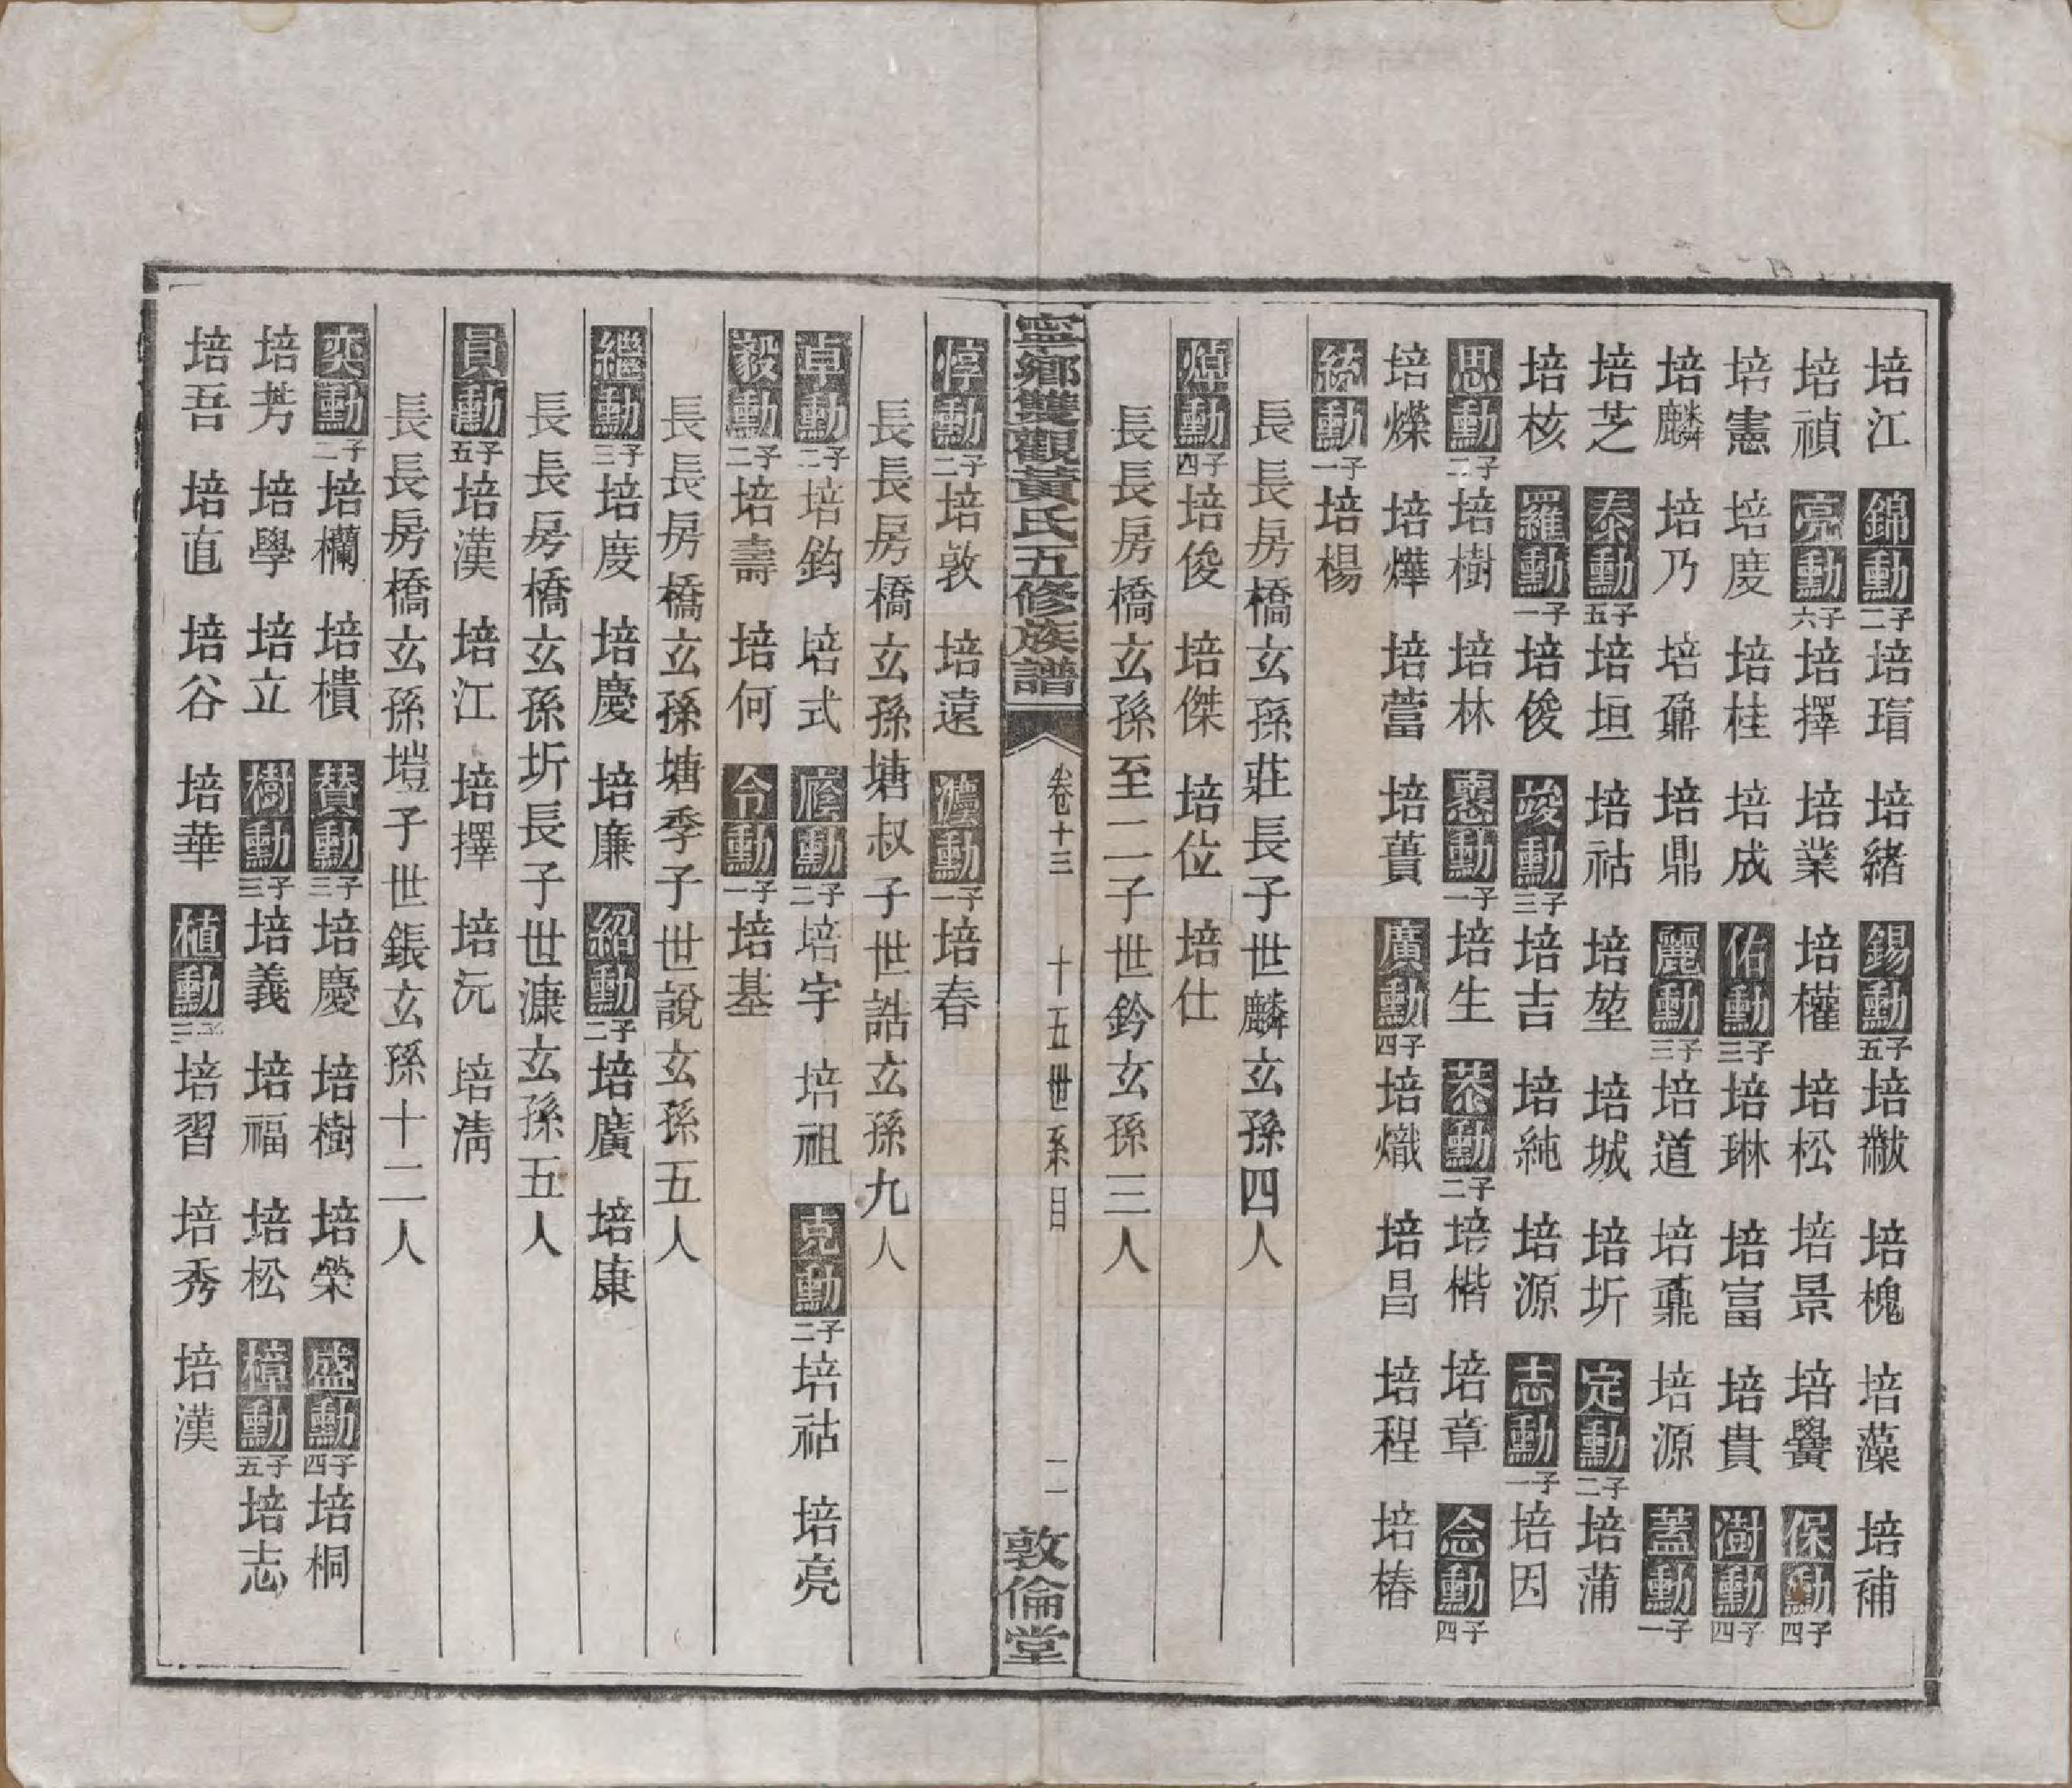 培江 錦勳二子 培瑨 培緒 錫勳五子 培黻 培槐 培藻 培補
培禎 亮勳六子 培擇 培業 培權 培松 培景 培黌 保勳四子
培憲 培度 培桂 培成 佑勳三子 培琳 培富 培貴 澍勳四子
培麟 培乃 培鼐 培鼎 麗勳三子 培道 培鼒 培源 蓋勳一子
培芝 泰勳五子 培垣 培祜 培堃 培城 培圻 定勳二子 培蒲
培核 羅勳一子 培俊 竣勳三子 培吉 培純 培源 志勳一子 培因
思勳二子 培樹 培林 慐勳一子 培生 恭勳二子 培楷 培章 念勳四子
培爍 培燁 培蕾 培蕡 廣勳四子 培熾 培昌 培程 培椿
統勳一子 培楊
長長房橋玄孫莊長子世麟玄孫四人
焯勳四子 培俊 培傑 培位 培仕
長長房橋玄孫至二子世鈐玄孫三人
寧鄉雙觀黃氏五修族譜 卷十三 十五世系目 二 敦倫堂
惇勳二子 培敦 培遠 濃勳一子 培春
長長房橋玄孫塘叔子世誥玄孫九人
卓勳二子 培鈞 培式 蔭勳二子 培宇 培祖 克勳二子 培祜 培亮
毅勳二子 培壽 培何 令勳一子 培基
長長房橋玄孫塘季子世說玄孫五人
繼勳三子 培度 培慶 培廉 紹勳二子 培廣 培康
長長房橋玄孫圻長子世漮玄孫五人
員勳五子 培漢 培江 培擇 培沅 培淸
長長房橋玄孫塏子世鋹玄孫十二人
奕勳二子 培欄 培樻 贊勳三子 培慶 培樹 培榮 盛勳四子 培桐
培芳 培學 培立 樹勳三子 培義 培福 培松 樟勳五子 培志
培吾 培直 培谷 培華 植勳三子 培習 培秀 培漢